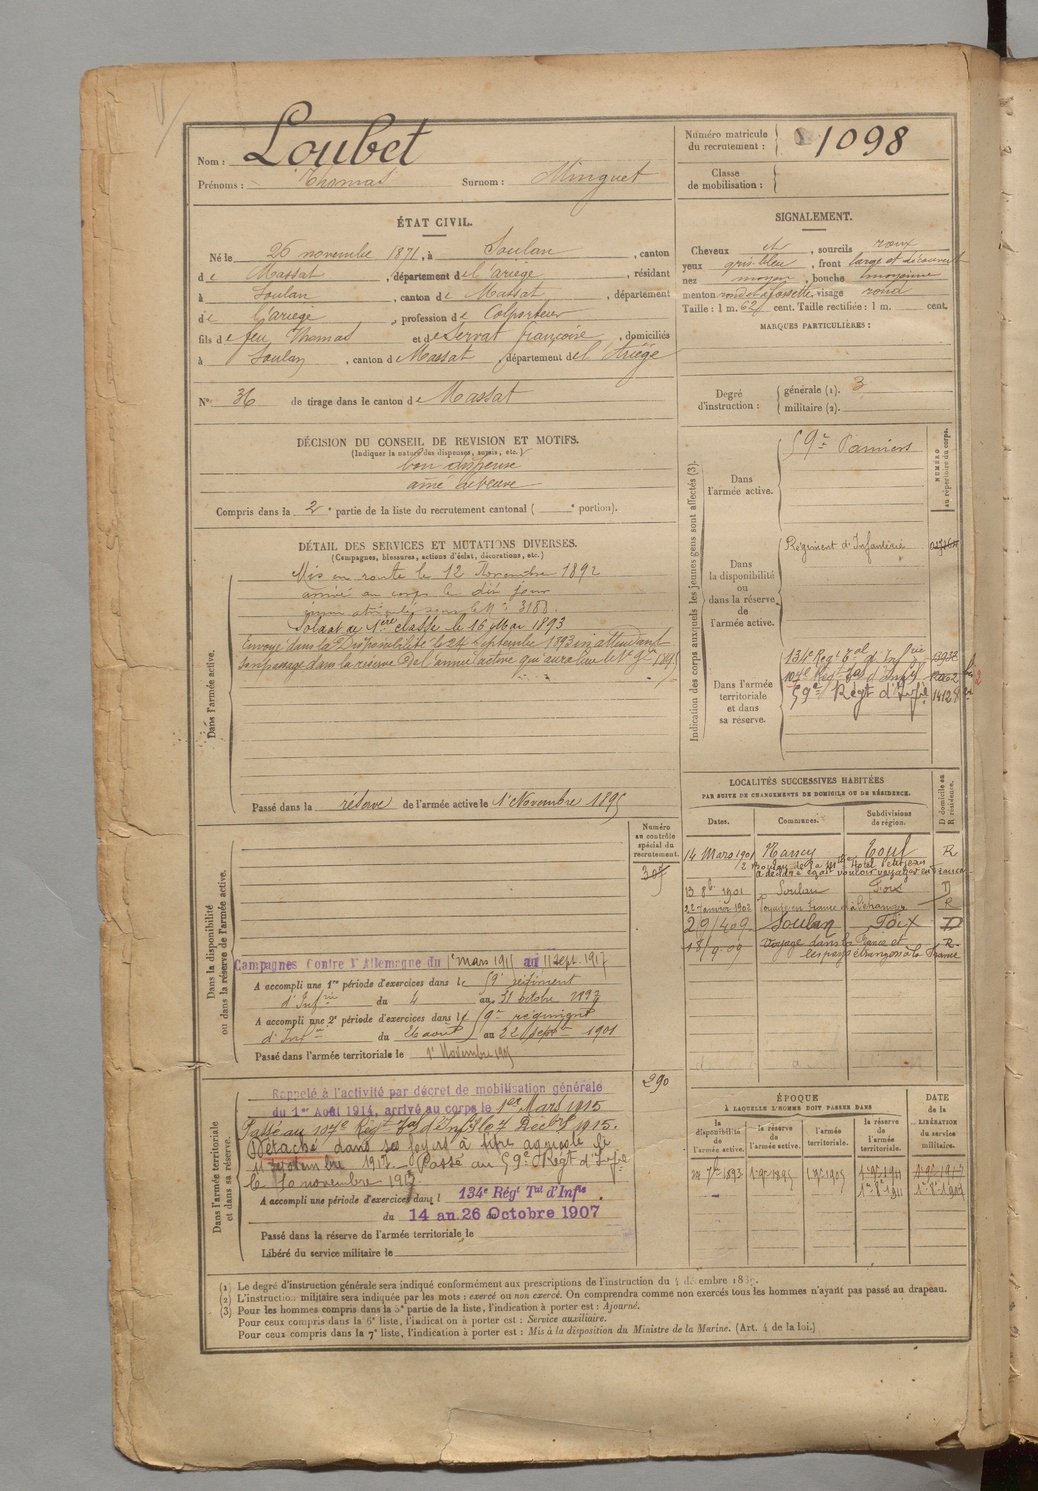 Nom : Loubet
Prénoms : Thomas Surnom : Minguet
Numéro matricule du recrutement : 1098
Classe de mobilisation :
ÉTAT CIVIL.
Né le 26 novembre 1871, à Soulan, canton
de Massat, département de l'ariège, résidant
à Soulan, canton de Massat, département
de l'ariège, profession de Colporteur
fils de feu Thomas et de Servat françoise, domiciliés
à Soulan, canton de Massat, département de l'Ariège
N° 36 de tirage dans le canton de Massat
SIGNALEMENT.
Cheveux et, sourcils roux
yeux gris bleu, front large et découvert
nez moyen, bouche moyenne
menton rond à fossette, visage rond
Taille : 1 m. 62 cent. Taille rectifiée : 1 m. cent.
MARQUES PARTICULIÈRES :
Degré d'instruction :
générale (1). 3
militaire (2).
DÉCISION DU CONSEIL DE REVISION ET MOTIFS.
(Indiquer la nature des dispenses, sursis, etc.)
bon dispensé
Compris dans la 2e partie de la liste du recrutement cantonal ( e portion).
DÉTAIL DES SERVICES ET MUTATIONS DIVERSES.
(Campagnes, blessures, actions d'éclat, décorations, etc.)
Dans l'armée active.
Mis en route le 12 Novembre 1892
arrivé au corps le dit jour
immatriculé sous le N° 3180.
Soldat de 1ère classe le 16 Mai 1893
Envoyé dans la Disponibilité le 24 septembre 1893 en attendant
son passage dans la réserve de l'armée active qui aura lieu le 1er 9bre 1895
Passé dans la réserve de l'armée active le 1er Novembre 1895
Indication des corps auxquels les jeunes gens sont affectés (3).
NUMÉRO au répertoire du corps.
Dans l'armée active.
59e Pamiers
Dans la disponibilité ou dans la réserve de l'armée active.
Régiment d'Infanterie
Dans l'armée territoriale et dans sa réserve.
134e Régt Tal d'Infrie
107e Régt Tal d'Infie
59e Régt d'Infie
LOCALITÉS SUCCESSIVES HABITÉES
PAR SUITE DE CHANGEMENTS DE DOMICILE OU DE RÉSIDENCE.
Dates. Communes. Subdivisions de région. D domicile ou R résidence.
14 Mars 1901 Nancy Toul R
13 8bre 1901 Soulan Foix D
22 Janvier 1902 Voyage en France et à l'étranger R
29/4 09 Soulan Foix D
18/9 09 Voyage dans la France et R
les pays étrangers à la France
Dans la disponibilité ou dans la réserve de l'armée active.
Numéro au contrôle spécial du recrutement.
305
Campagnes Contre l'Allemagne du 1er mars 1915 au 11 sept. 1917
A accompli une 1re période d'exercices dans le 59e régiment
d'Infrie du 4 au 31 octobre
A accompli une 2e période d'exercices dans le 59e régiment
d'Infie du 26 août au 22 septbre 1901
Passé dans l'armée territoriale le 1er Novembre 1905
Dans l'armée territoriale et dans sa réserve.
290
Rappelé à l'activité par décret de mobilisation générale
du 1er Août 1914, arrivé au corps le 1er Mars 1915
Passé au 107e Régt Tal d'Inf. le 7 Décbre 1915.
Détaché dans ses foyers à titre agricole le
11 septembre 1917. — Passé au 59e Régt d'Infie
le 10 novembre 1917.
A accompli une période d'exercices dans l 134e Régt Tal d'Infie
du 14 au 26 Octobre 1907
Passé dans la réserve de l'armée territoriale le
Libéré du service militaire le
ÉPOQUE
À LAQUELLE L'HOMME DOIT PASSER DANS
la disponibilité de l'armée active. la réserve de l'armée active. l'armée territoriale. la réserve de l'armée territoriale.
DATE de la LIBÉRATION du service militaire.
24 7bre 1893 1er 9bre 1895 1er 9bre 1905 1er 9bre 1911 1er 9bre 1917
(1) Le degré d'instruction générale sera indiqué conformément aux prescriptions de l'instruction du 4 décembre 1889.
(2) L'instruction militaire sera indiquée par les mots : exercé ou non exercé. On comprendra comme non exercés tous les hommes n'ayant pas passé au drapeau.
(3) Pour les hommes compris dans la 5e partie de la liste, l'indication à porter est : Ajourné.
Pour ceux compris dans la 6e liste, l'indication à porter est : Service auxiliaire.
Pour ceux compris dans la 7e liste, l'indication à porter est : Mis à la disposition du Ministre de la Marine. (Art. 4 de la loi.)